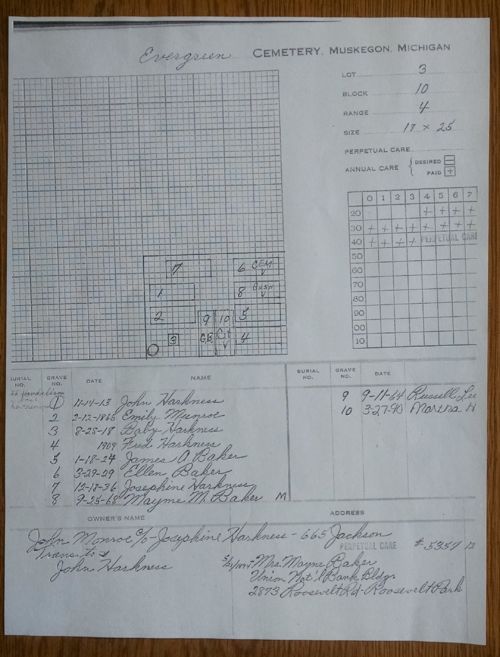 Evergreen CEMETERY, MUSKEGON, MICHIGAN
LOT 3
BLOCK 10
RANGE 4
SIZE 17 x 25
PERPETUAL CARE
ANNUAL CARE { DESIRED
PAID +
0 1 2 3 4 5 6 7
20 + + + +
30 + + + + + + + +
40 + + + + PERPETUAL CARE
50
60
70
80
90
00
10
7 6
1 8
2 9 10 5
3 4
BURIAL NO. GRAVE NO. DATE NAME BURIAL NO. GRAVE NO. DATE
1 11-14-13 John Harkness
2 2-12-1865 Emily Monroe
3 8-25-18 Baby Harkness
4 1909 Fred Harkness
5 1-18-24 James A Baker
6 3-29-29 Ellen Baker
7 10-18-36 Josephine Harkness
8 9-25-68 Mayme M. Baker M
9 9-11-64 Russell Lee
10 3-27-90
OWNER'S NAME ADDRESS
John Monroe c/o Josephine Harkness - 665 Jackson
Trans. to John Harkness
PERPETUAL CARE # 5357
Mrs. Mayme Baker
Union Nat'l Bank Bldg
2873 Roosevelt Rd - Roosevelt Park